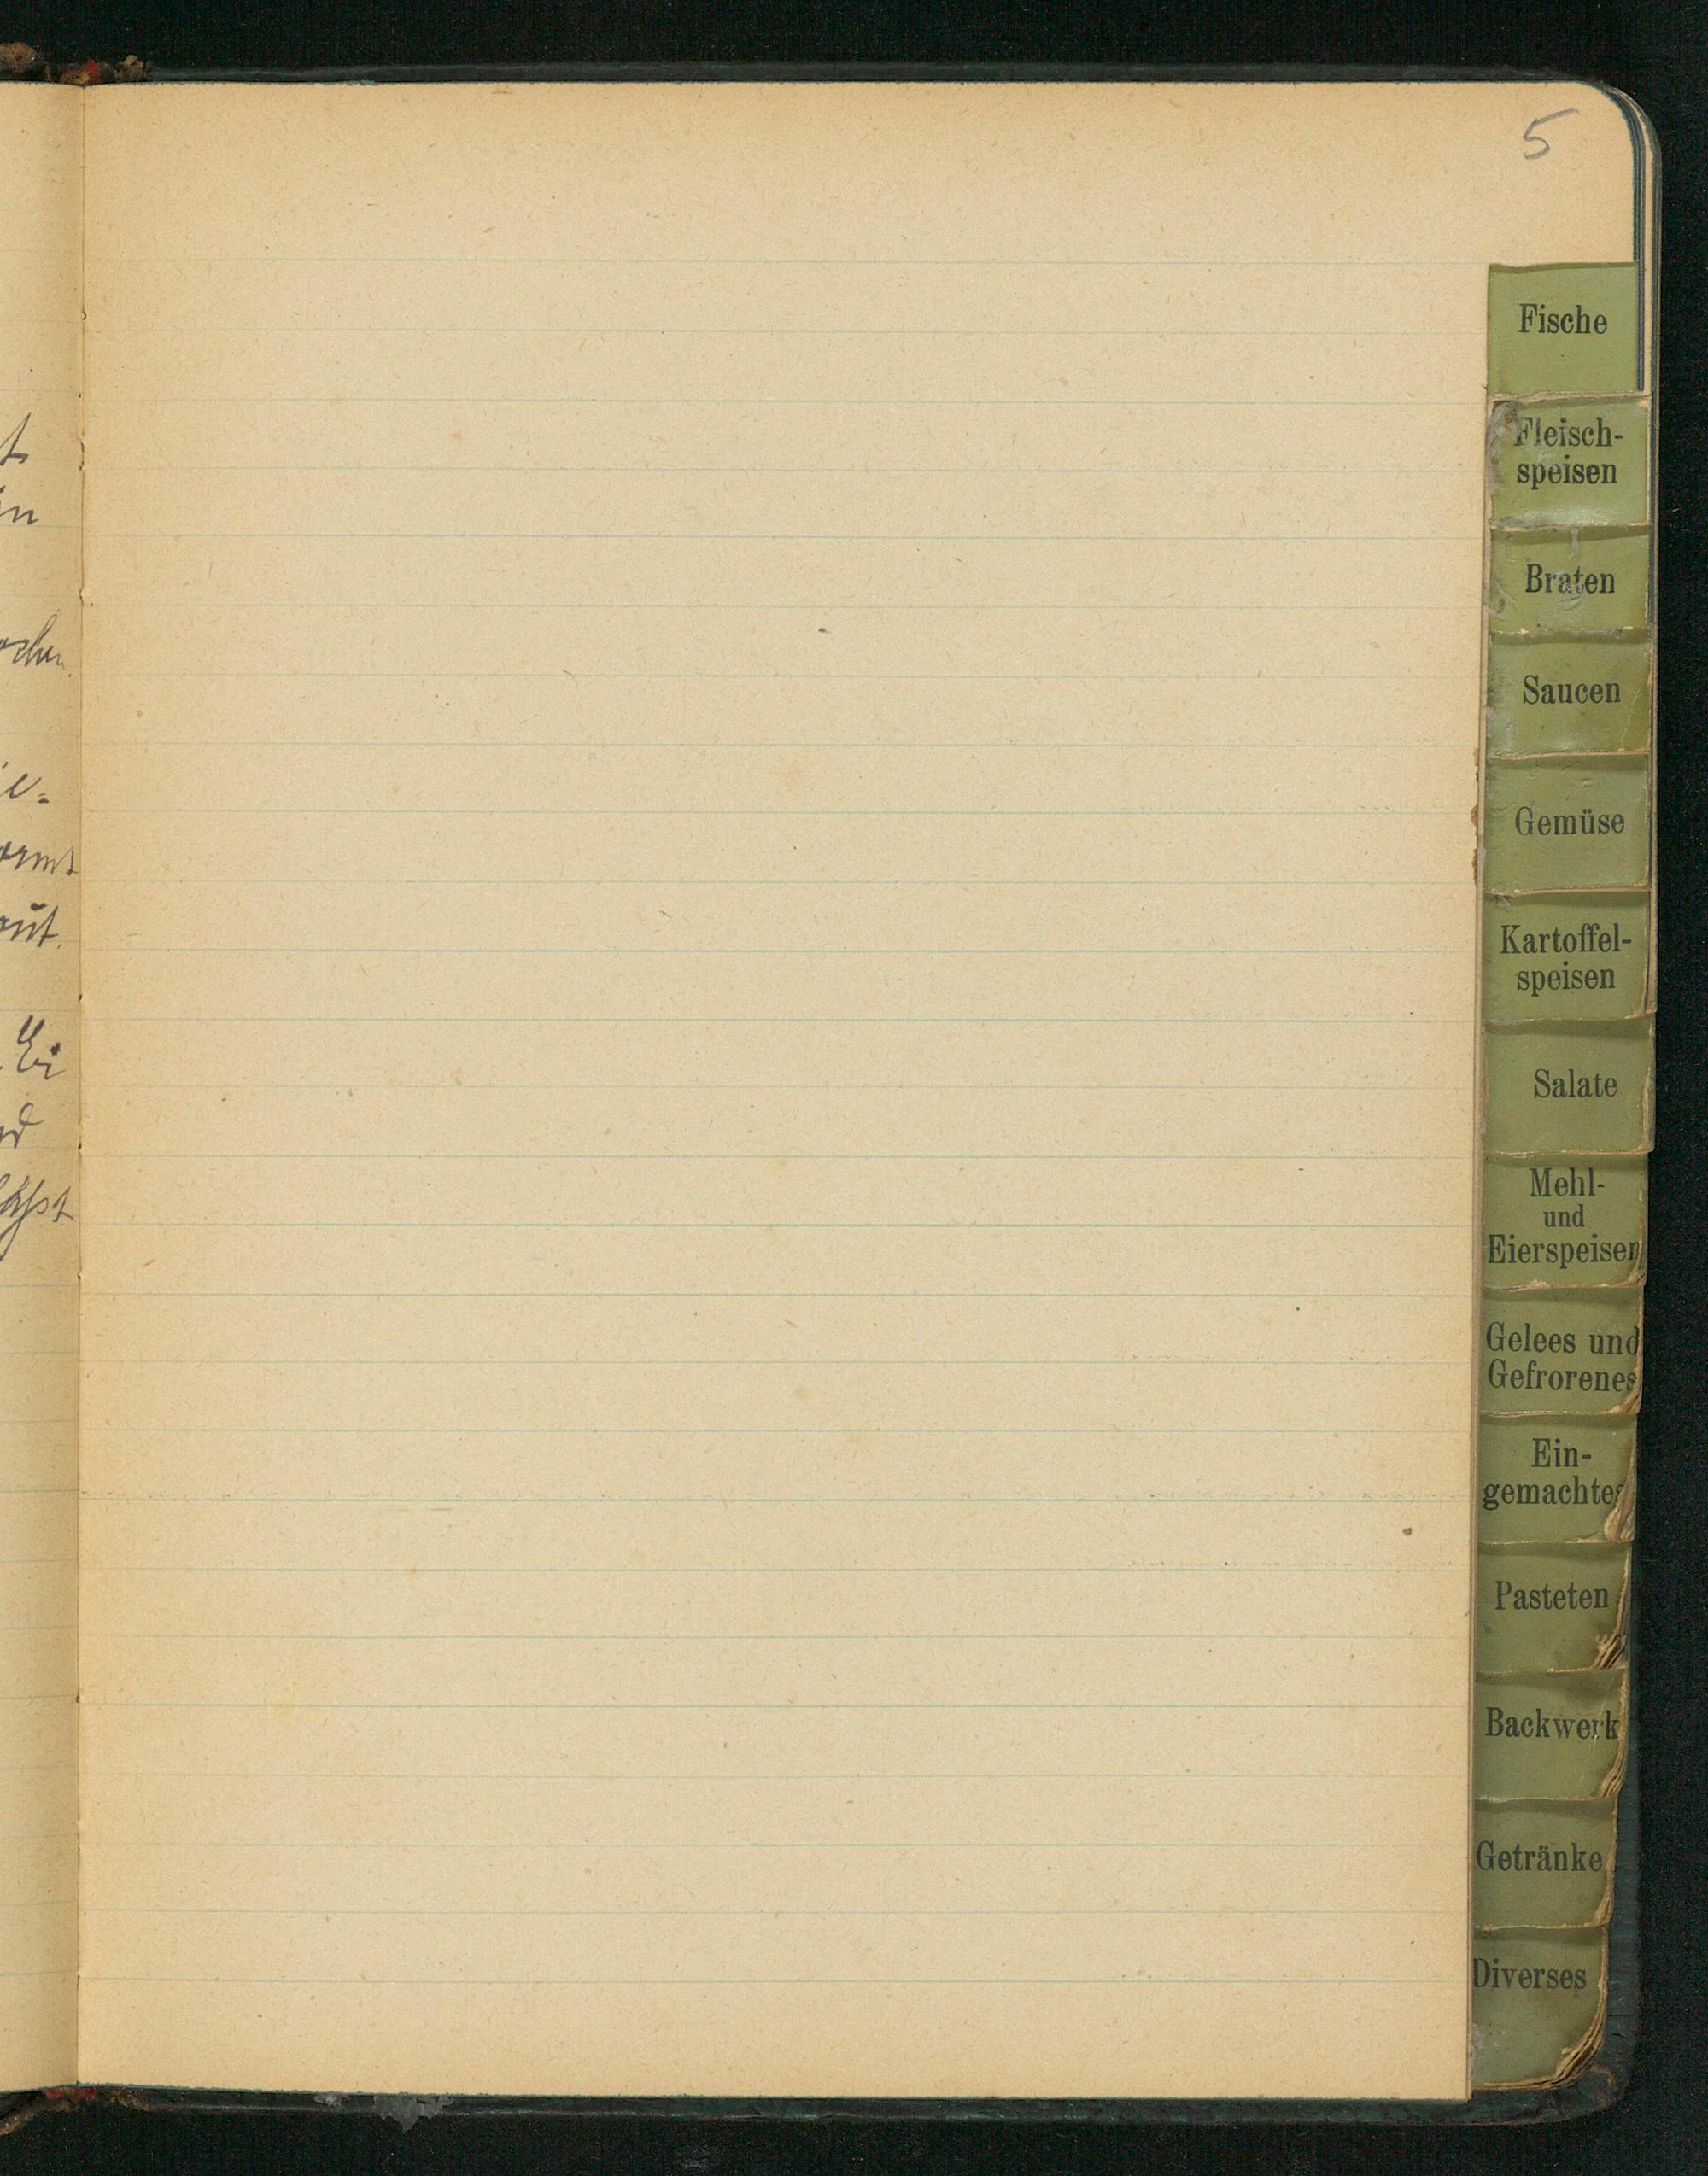 5
Fische
Fleisch-
speisen
Braten
Saucen
Gemüse
Kartoffel-
speisen
Salate
Mehl-
und
Eierspeisen
Gelees und
Gefrorenes
Ein-
gemachtes
Pasteten
Backwerk
Getränke
Diverses